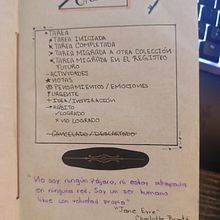 • TAREA
• TAREA INICIADA
× TAREA COMPLETADA
> TAREA MIGRADA A OTRA COLECCIÓN
< TAREA MIGRADA EN EL REGISTRO
FUTURO
- ACTIVIDADES
★ NOTAS
PENSAMIENTOS/EMOCIONES
! URGENTE
IDEA/INSPIRACIÓN
HÁBITO
✓ LOGRADO
× NO LOGRADO
CANCELADO/DESCARTADO
"No soy ningún pájaro, ni estoy atrapada
en ninguna red. Soy un ser humano
libre con voluntad propia"
"Jane Eyre"
Charlotte Brontë